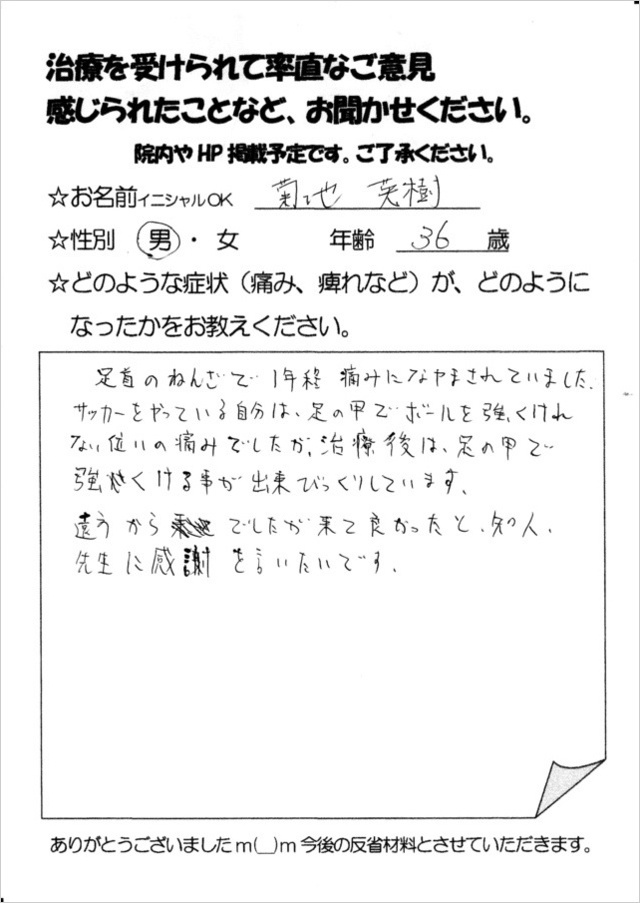 治療を受けられて率直なご意見
感じられたことなど、お聞かせください。
院内や HP 掲載予定です。ご了承ください。
☆お名前イニシャルOK 菊池 英樹
☆性別 男・女 年齢 36 歳
☆どのような症状（痛み、痺れなど）が、どのように
なったかをお教えください。
足首のねんざで 1年経 痛みになやまされていました。
サッカーをやっている自分は、足の甲でボールを強くけれ
ない位いの痛みでしたが、治療後は、足の甲で
強くける事が出来びっくりしています。
遠うから でしたが来て良かったと、知人、
先生に感謝を言いたいです。
ありがとうございましたm(__)m今後の反省材料とさせていただきます。